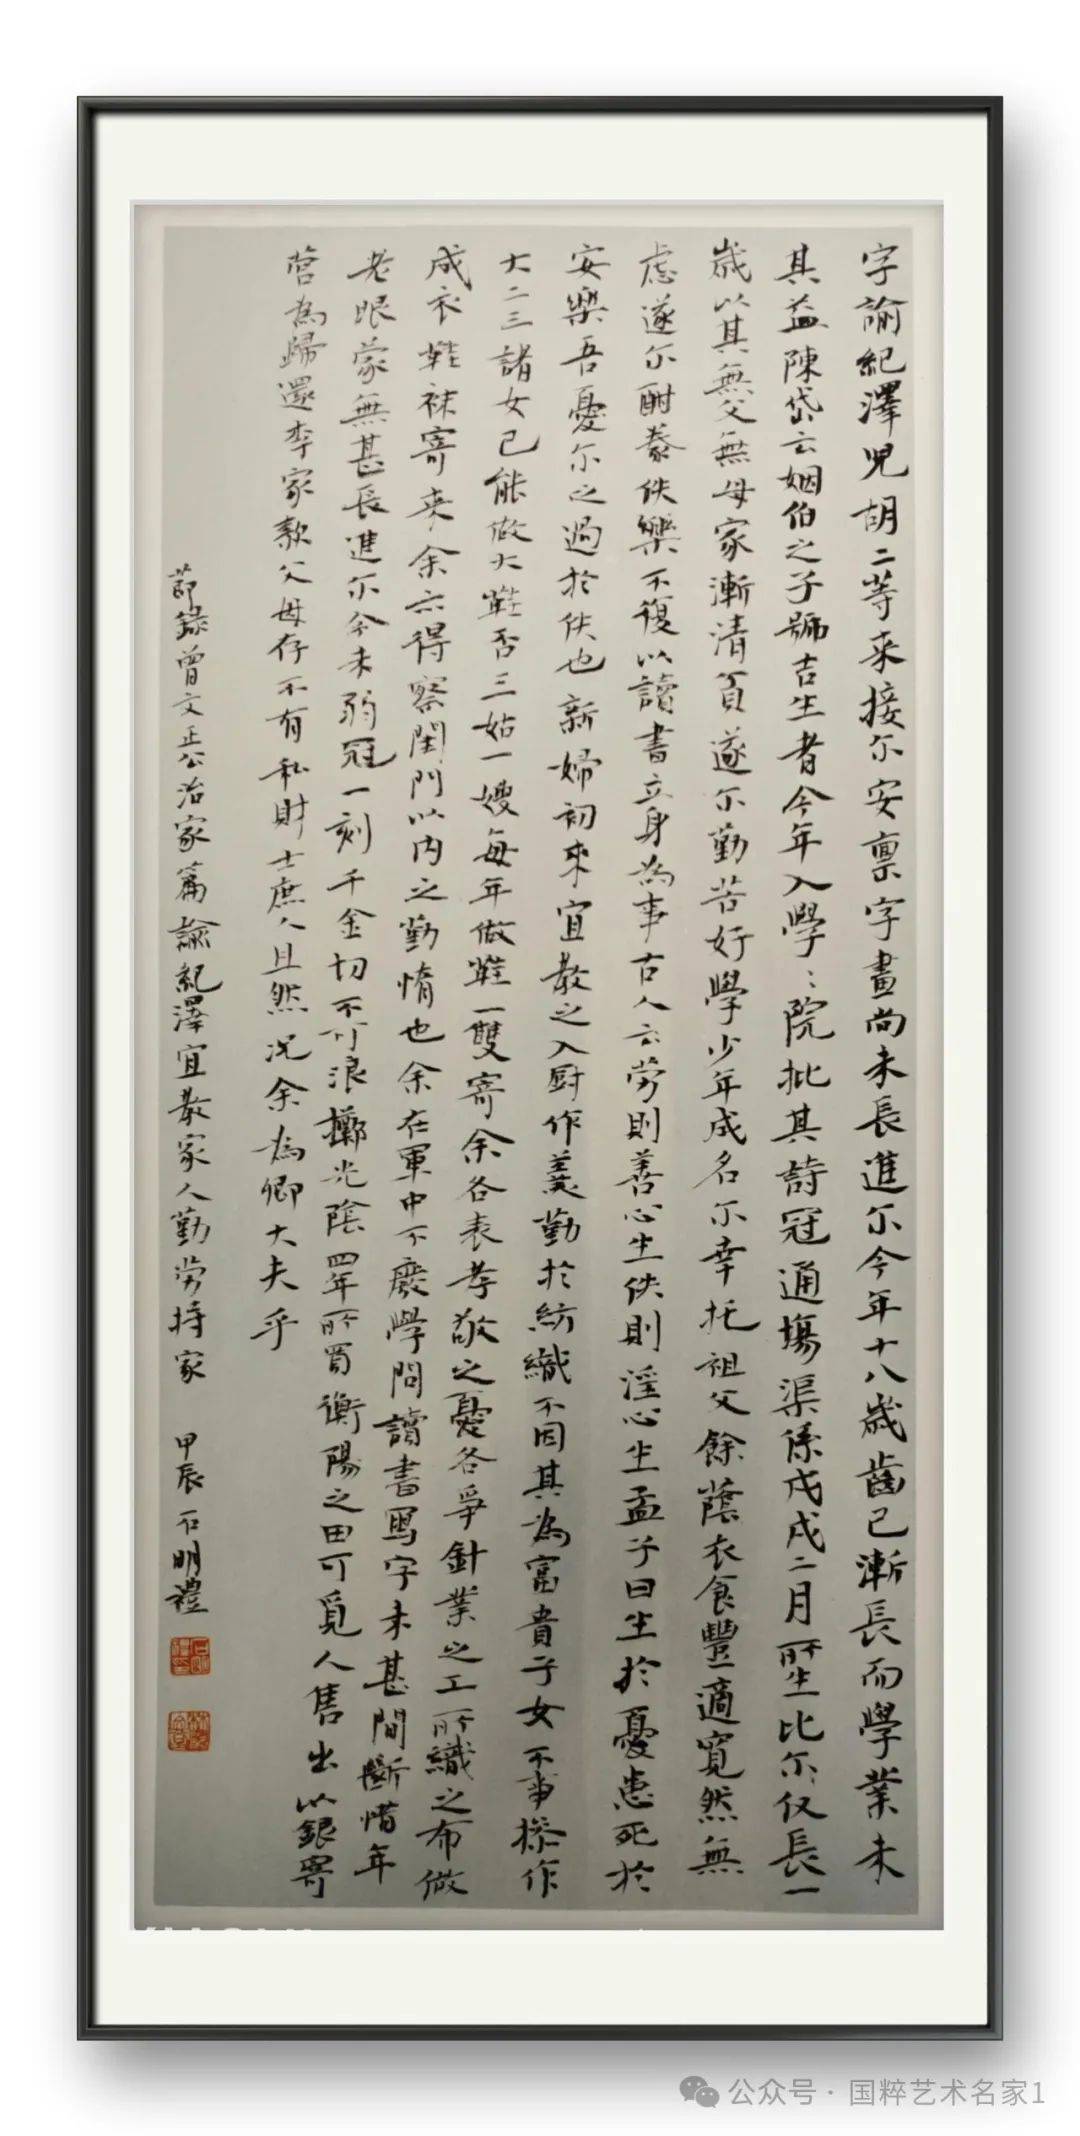 字諭紀澤兒胡二等来接尔安禀字畫尚未長進尔今年十八歲齒已漸長而學業未
其益陳岱云姻伯之子號吉生者今年入學〻院批其詩冠通場渠係戊戌二月所生比尔仅長一
歲以其無父無母家漸清貧遂尔勤苦好學少年成名尔幸托祖父餘蔭衣食豐適寬然無
慮遂尔酣豢佚樂不復以讀書立身為事古人云勞則善心生佚則淫心生孟子曰生於憂患死於
安樂吾憂尔之過於佚也新婦初來宜教之入厨作羹勤於紡織不因其為富貴子女不事操作
大二三諸女已能做大鞋否三姑一嫂每年做鞋一雙寄余各表孝敬之憂各爭針業之工所織之布做
成衣鞋袜寄来余亦得察閨門以内之勤惰也余在軍中不廢學問讀書寫字未甚間斷惜年
老眼蒙無甚長進尔今未弱冠一刻千金切不可浪擲光陰四年所買衡陽之田可覓人售出以銀寄
營為歸還李家款父母存不有私財士庶人且然况余為卿大夫乎
節錄曾文正公治家篇諭紀澤宜教家人勤勞持家 甲辰 石明禮
公众号·国粹艺术名家1